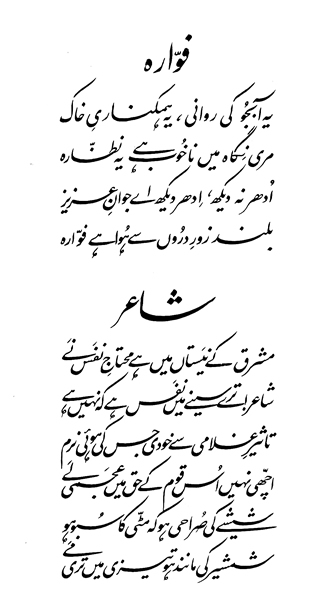 فوّارہ
یہ آبجُو کی روانی ، یہ ہمکناریِ خاک
مری نگاہ میں ناخُوب ہے یہ نظّارہ
اُدھر نہ دیکھ، اِدھر دیکھ اے جوانِ عزیز
بلند زورِ درُوں سے ہُوا ہے فوّارہ
شاعر
مشرق کے نَیستاں میں ہے محتاجِ نفَس نَے
شاعر! ترے سینے میں نفَس ہے کہ نہیں ہے
تاثیرِ غلامی سے خودی جس کی ہوئی نرم
اچھّی نہیں اُس قوم کے حق میں عجمی لَے
شیشے کی صُراحی ہو کہ مٹّی کا سبُو ہو
شمشیر کی مانند ہو تیزی میں تری مَے